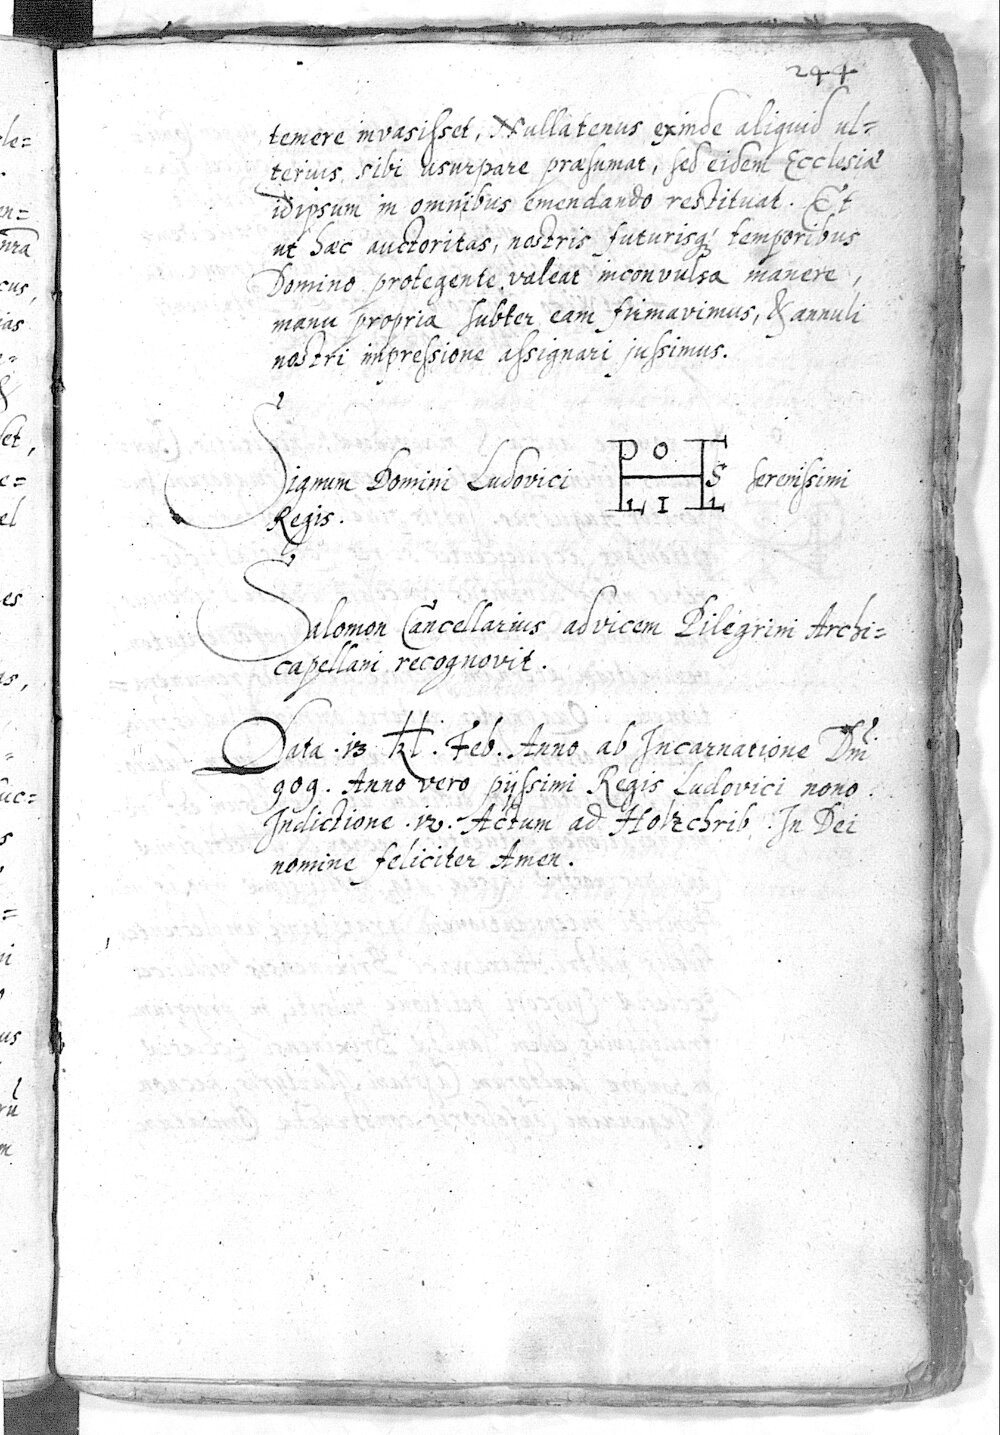 244
temere invasisset, Nullatenus exinde aliquid ul=
terius sibi usurpare præsumat, sed eidem Ecclesiæ
idipsum in omnibus emendando restituat. Et
ut hæc auctoritas, nostris futurisq; temporibus
Domino protegente valeat inconvulsa manere,
manu propria subter eam firmavimus, & annuli
nostri impressione assignari jussimus.
Signum Domini Ludovici serenissimi
Regis.
Salomon Cancellarius advicem Piligrini Archi=
capellani recognovit.
Data .13. Kl. Feb. Anno ab Incarnatione Dni
909. Anno vero pijssimi Regis Ludovici nono.
Indictione .12. Actum ad Holzchrib. In Dei
nomine feliciter Amen.